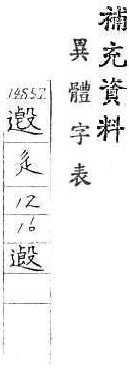 補充資料
異體字表
14852
遐
辵
12
16
遐